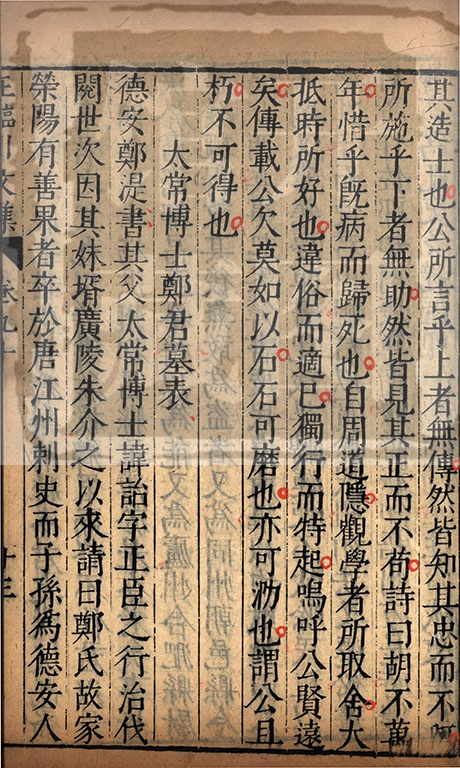 其造士也公所言乎上者無傳然皆知其忠而不阿
所施乎下者無助然皆見其正而不苟詩曰胡不萬
年惜乎旣病而歸死也自周道隱觀學者所取舍大
抵時所好也違俗而適己獨行而特起嗚呼公賢遠
矣傳載公久莫如以石石可磨也亦可泐也謂公且
朽不可得也
太常博士鄭君墓表
德安鄭湜書其父太常博士諱詒字正臣之行治伐
閱世次因其妹壻廣陵朱介之以來請曰鄭氏故家
滎陽有善果者卒於唐江州刺史而子孫為德安人
王臨川文集 卷九十 十三